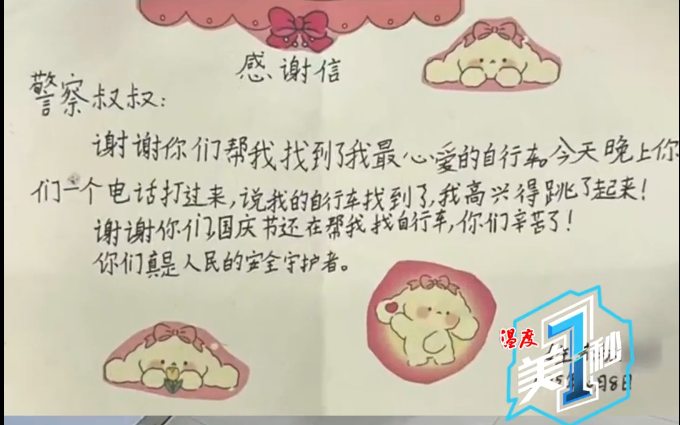 感谢信
警察叔叔：
谢谢你们帮我找到了我最心爱的自行车。今天晚上你
们一个电话打过来，说我的自行车找到了，我高兴得跳了起来！
谢谢你们国庆节还在帮我找自行车，你们辛苦了！
你们真是人民的安全守护者。
温度
美1秒
月8日